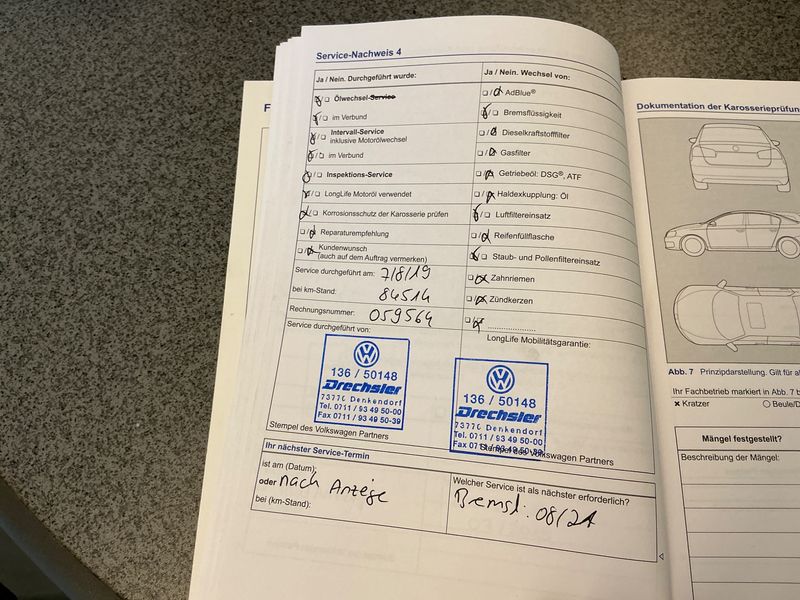 Service-Nachweis 4
Ja / Nein. Durchgeführt wurde:
Ölwechsel-Service
im Verbund
Intervall-Service
inklusive Motorölwechsel
im Verbund
Inspektions-Service
LongLife Motoröl verwendet
Korrosionsschutz der Karosserie prüfen
Reparaturempfehlung
Kundenwunsch
(auch auf dem Auftrag vermerken)
Service durchgeführt am: 7/8/19
bei km-Stand: 84514
Rechnungsnummer: 059564
Service durchgeführt von:
136 / 50148
Drechsler
73770 Denkendorf
Tel. 0711 / 93 49 50-00
Fax 0711 / 93 49 50-39
Stempel des Volkswagen Partners
Ja / Nein. Wechsel von:
AdBlue®
Bremsflüssigkeit
Dieselkraftstofffilter
Gasfilter
Getriebeöl: DSG®, ATF
Haldexkupplung: Öl
Luftfiltereinsatz
Reifenfüllflasche
Staub- und Pollenfiltereinsatz
Zahnriemen
Zündkerzen
LongLife Mobilitätsgarantie:
136 / 50148
Drechsler
73770 Denkendorf
Tel. 0711 / 93 49 50-00
Fax 0711 / 93 49 50-39
Stempel des Volkswagen Partners
Ihr nächster Service-Termin
ist am (Datum):
oder nach Anzeige
bei (km-Stand):
Welcher Service ist als nächster erforderlich?
Bremsfl: 08/21
Dokumentation der Karosserieprüfun
Abb. 7 Prinzipdarstellung. Gilt für al
Ihr Fachbetrieb markiert in Abb. 7 b
× Kratzer
Beule/D
Mängel festgestellt?
Beschreibung der Mängel: